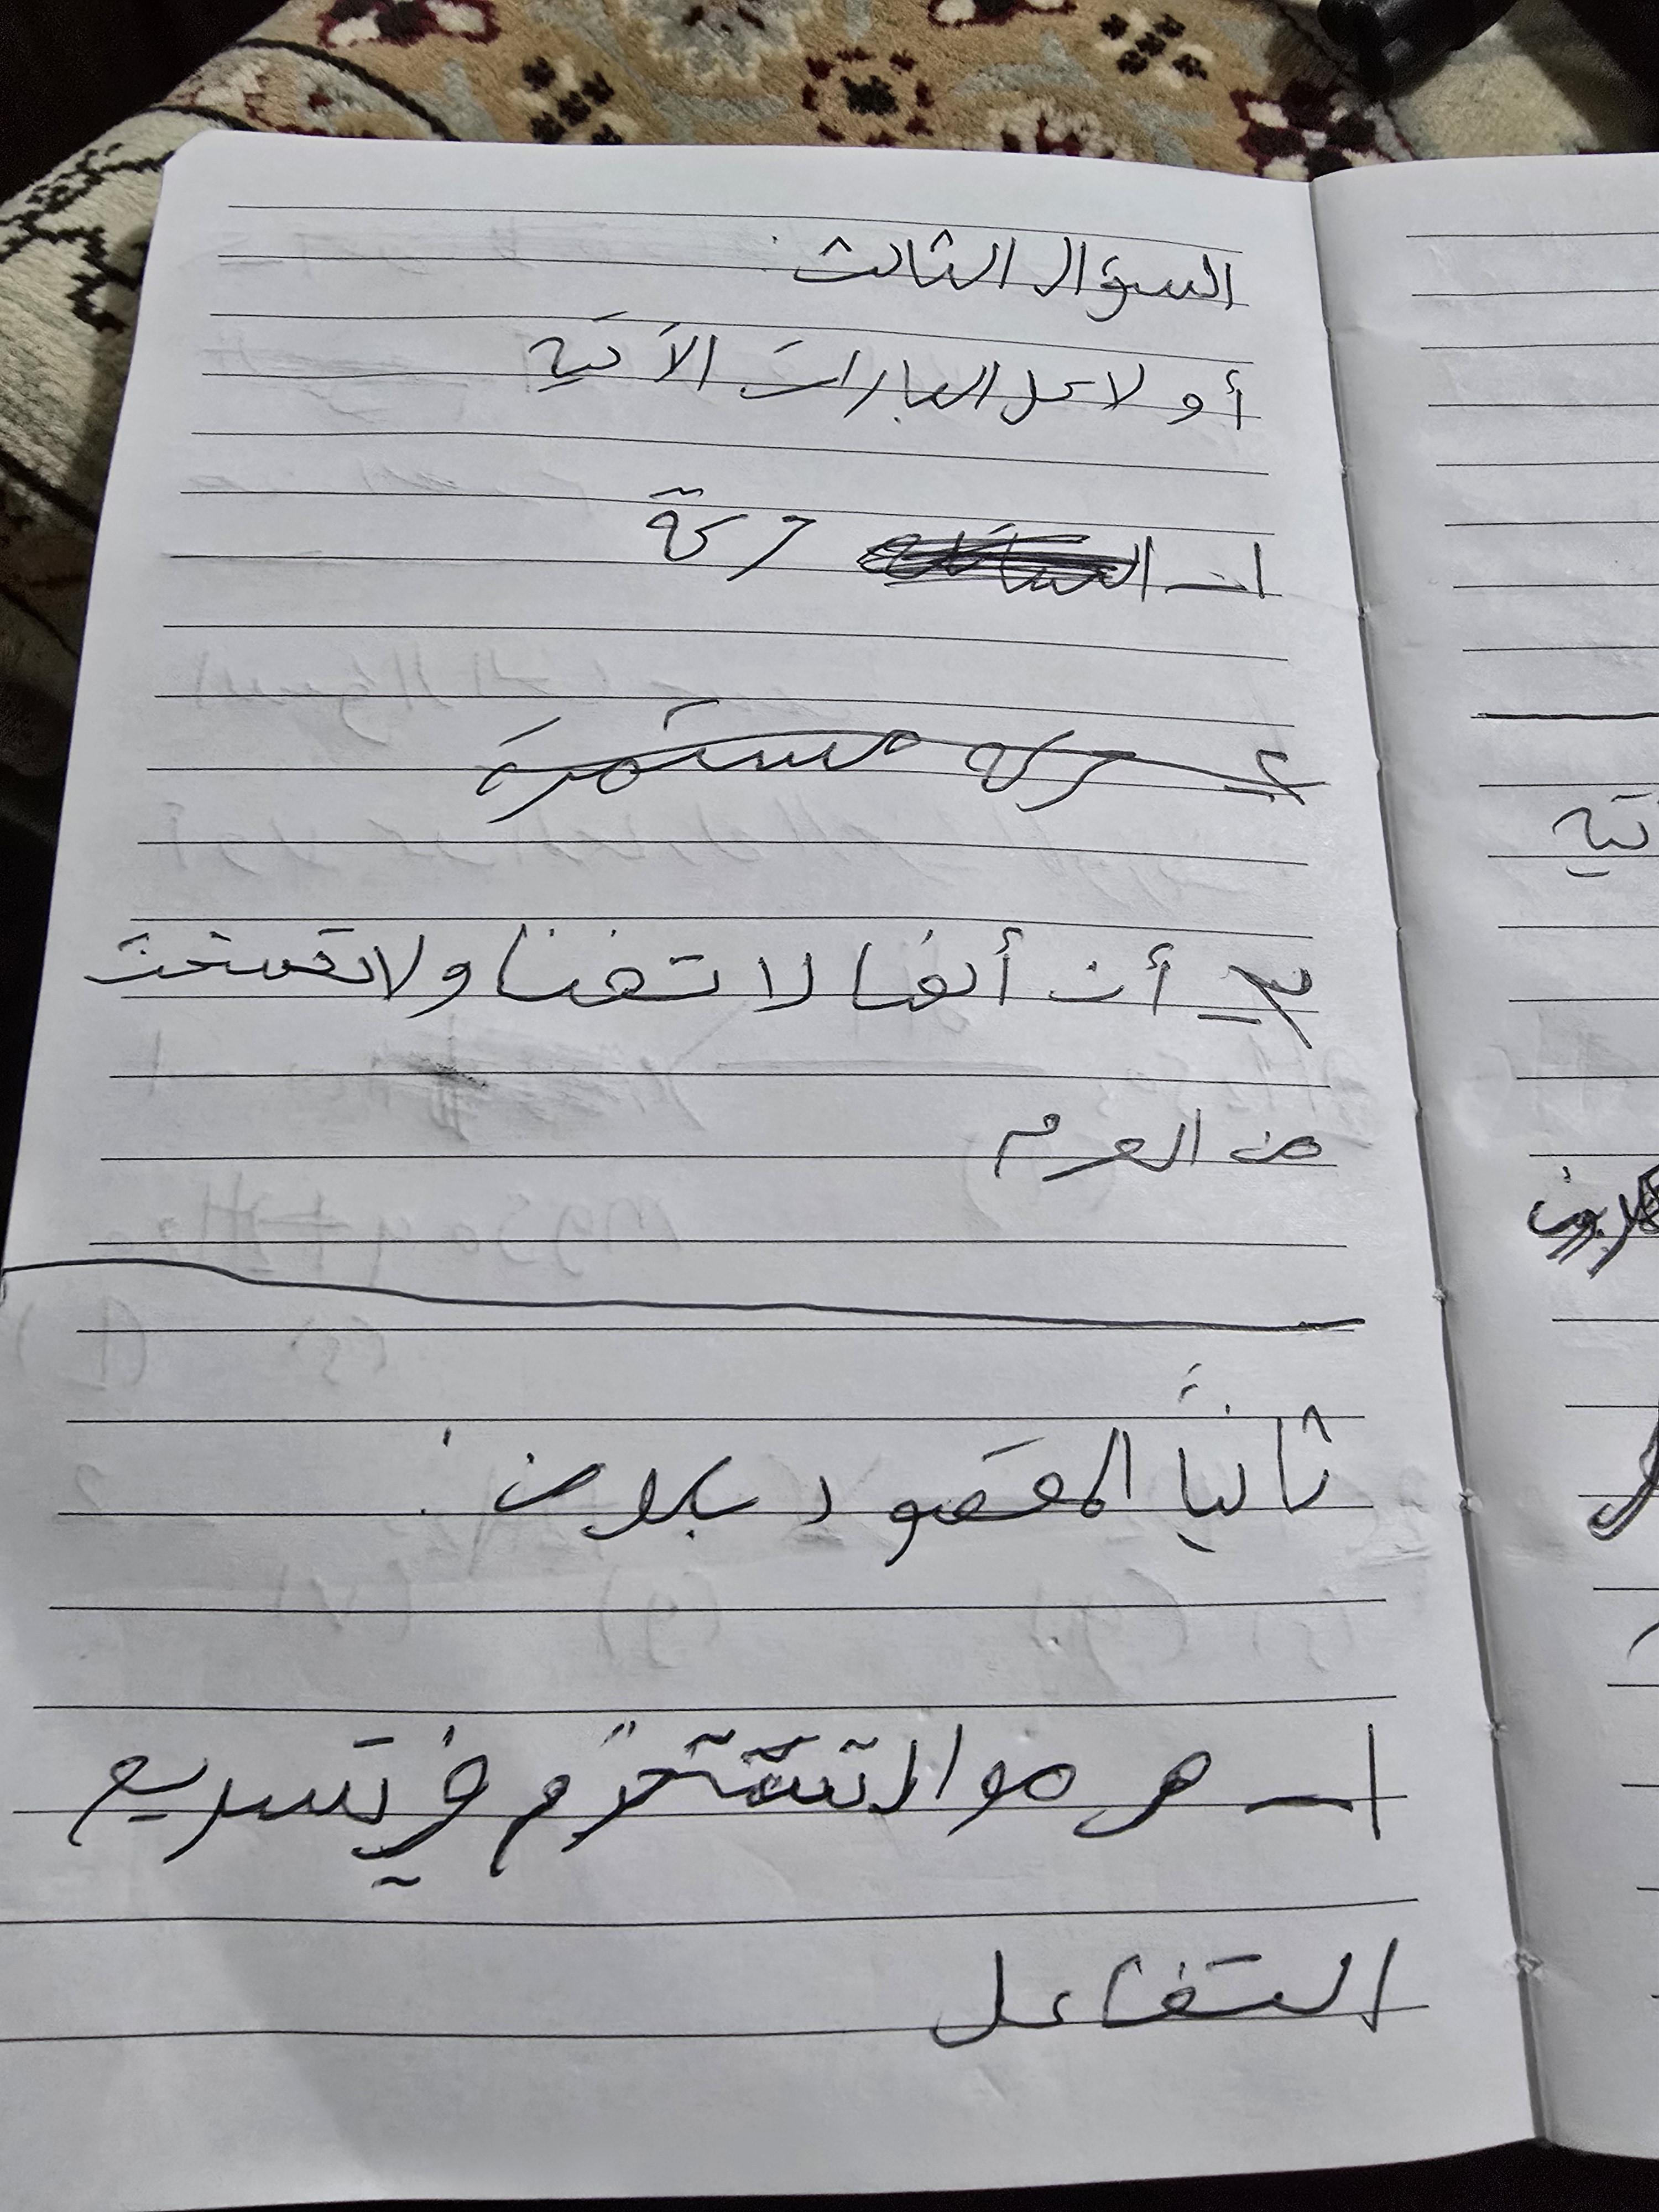 السؤال الثالث
أولا كل العبارات الآتية
١ - حركة
٢ - حركة مستمرة
٣ - أن أنها لا تفنا ولا تستحدث
من العدم
ثانياً المقصود بلامن :
١ - هـ موا تستخدم في تسريع
التفاعل
تية